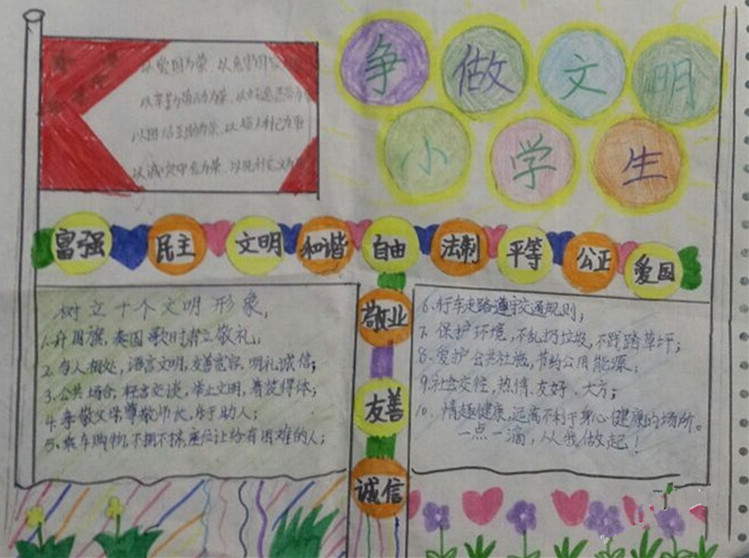 争做文明
小学生
以爱国为荣、以危害
以辛勤劳动为荣、以好逸恶劳为
以团结互助为荣、以损人利己为
以诚实守信为荣、以见利忘义为
富强 民主 文明 和谐 自由 法制 平等 公正 爱国
敬业
友善
诚信
树立十个文明形象,
1.升国旗,奏国歌时肃立敬礼;
2.与人相处,语言文明,友善宽容,明礼诚信;
3.公共场合,轻言交谈,举止文明,着装得体;
4.孝敬父母尊敬师长,乐于助人;
5.乘车购物,不拥不挤,座位让给有困难的人;
6.行车走路遵守交通规则;
7.保护环境,不乱扔垃圾,不践踏草坪;
8.爱护公共设施,节约公用能源;
9.社会交往,热情、友好、大方;
10.情趣健康,远离不利于身心健康的场所。
一点一滴,从我做起!